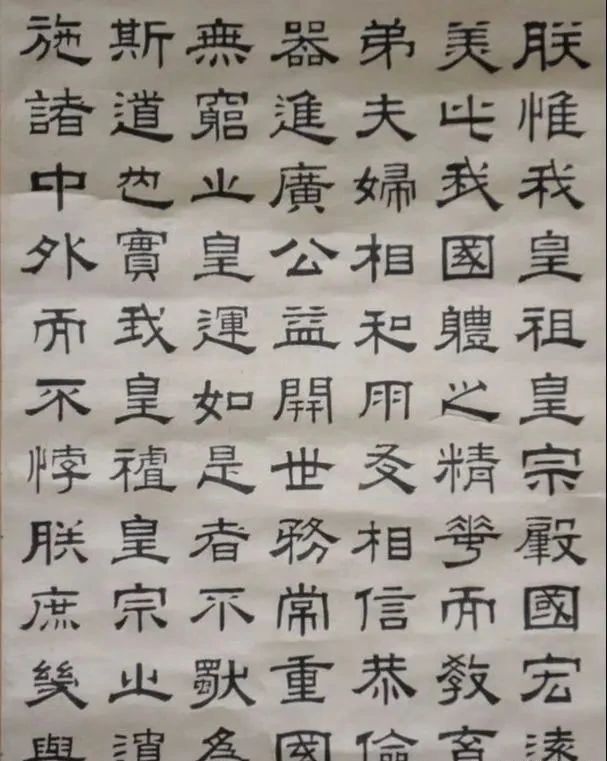 朕惟我皇祖皇宗肇國宏遠
美此我國體之精華而教育
弟夫婦相和朋友相信恭儉
器進廣公益開世務常重國
無窮之皇運如是者不獨為
斯道也實我皇祖皇宗之遺
施諸中外而不悖朕庶幾與